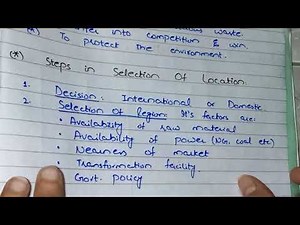 into competition & win.
(*) To protect the environment.
(*) Steps in Selection Of Location
1. Decision: International or Domestic
2. Selection of region: It's factors are:
• Availability of raw material
• Availability of power (NG, coal etc)
• Nearness of market
• Transformation facility.
Govt. policy